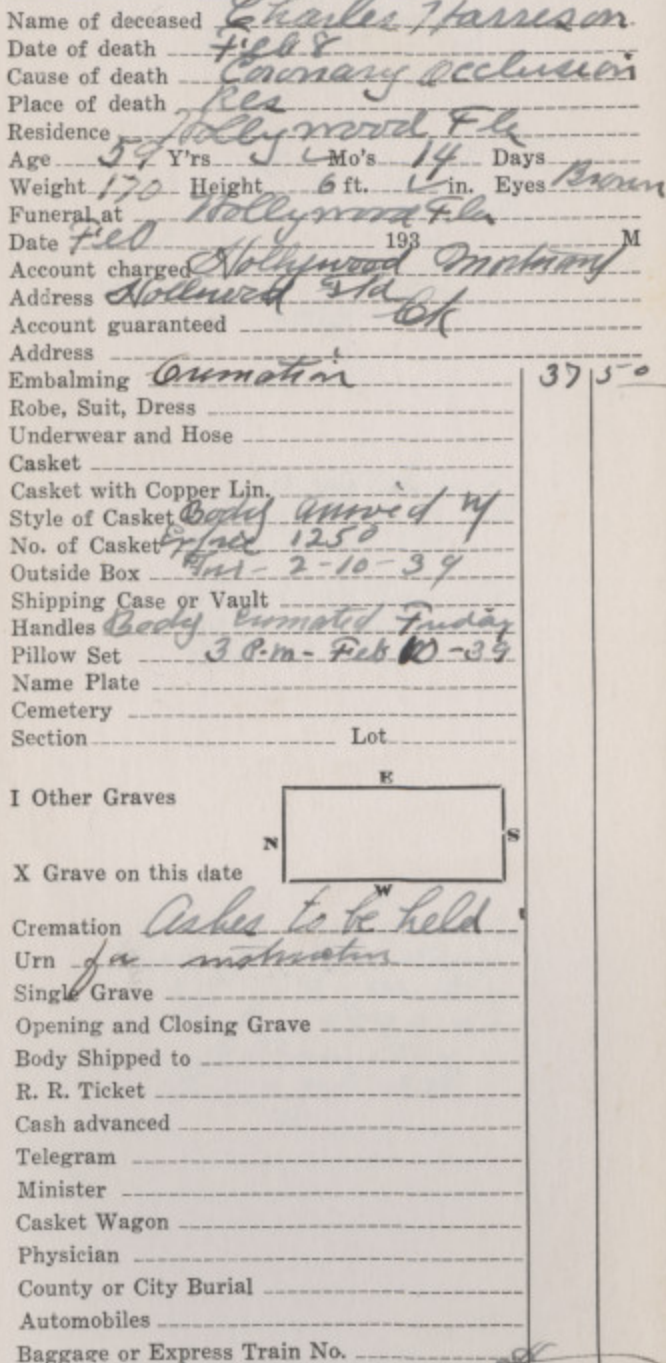 Name of deceased Charles Harreson
Date of death Feb 8
Cause of death Coronary Occlusion
Place of death Res
Residence Hollywood Fla
Age 59 Y'rs Mo's 14 Days
Weight 170 Height 6 ft. in. Eyes Brown
Funeral at Hollywood Fla
Date Feb 193 M
Account charged Hollywood Mortuary
Address Hollywood Fla
Account guaranteed Ok
Address
Embalming Cremation 37 50
Robe, Suit, Dress
Underwear and Hose
Casket
Casket with Copper Lin.
Style of Casket Body arrived
No. of Casket 1250
Outside Box 2-10-39
Shipping Case or Vault
Handles Body Cremated Friday
Pillow Set 3 P.m- Feb 10 -39
Name Plate
Cemetery
Section Lot
E
I Other Graves
N S
X Grave on this date
W
Cremation Ashes to be held
Urn for instruction
Single Grave
Opening and Closing Grave
Body Shipped to
R. R. Ticket
Cash advanced
Telegram
Minister
Casket Wagon
Physician
County or City Burial
Automobiles
Baggage or Express Train No.